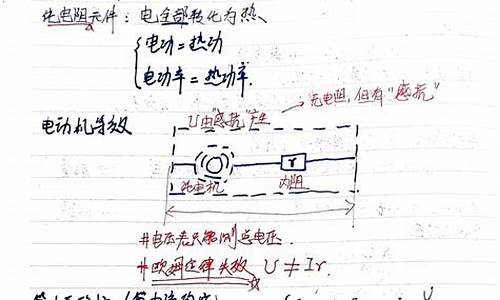 纯电阻元件：电全部转化为热、
电功=热功
电功率=热功率.
无电阻,但有"感抗"
电动机等效
U由"感抗"产生
纯电机
r
内阻
#电压表只能测总电压.
#欧姆定律失效 U≠Ir.